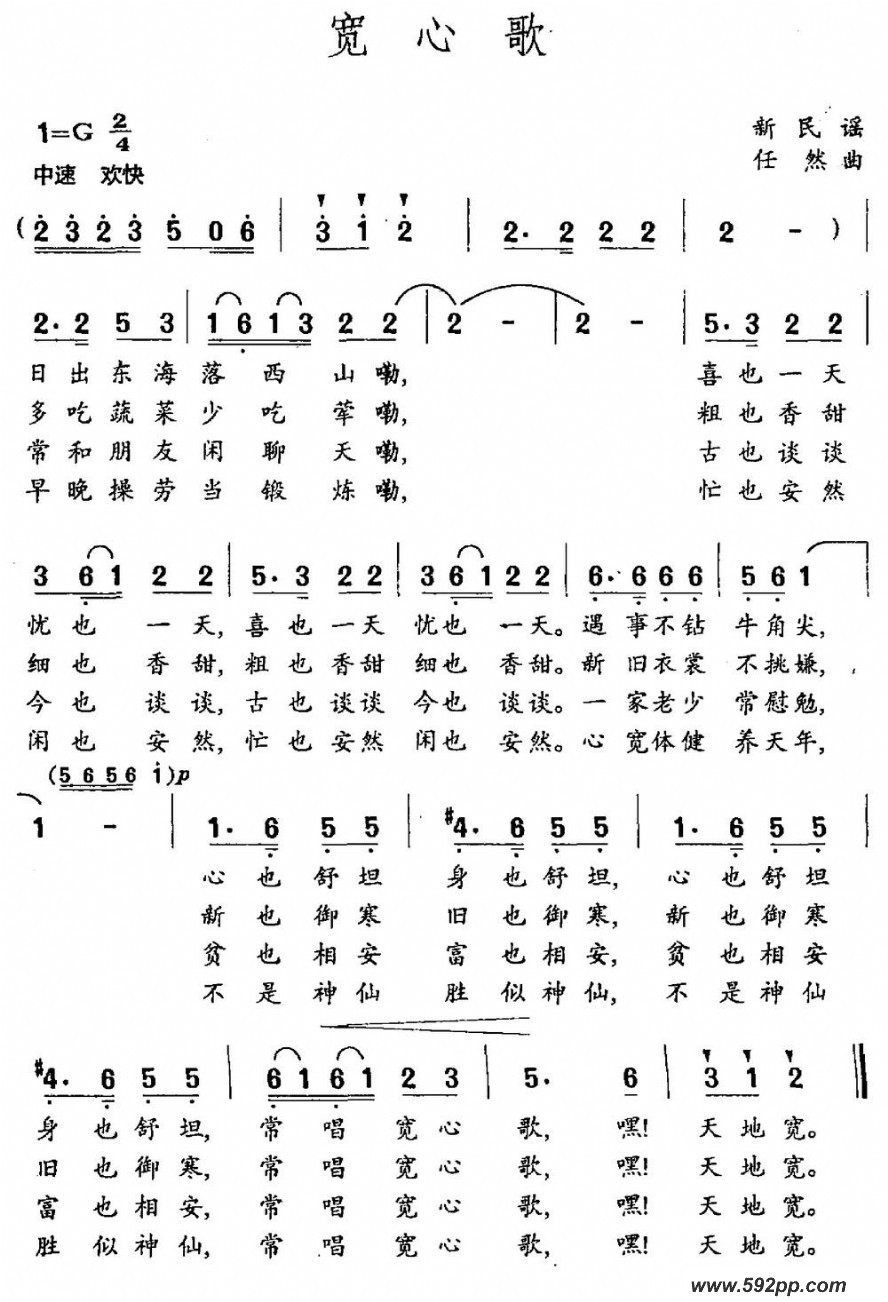 宽心歌
1=G 2/4
新民谣
中速 欢快
任然曲
(2 3 2 3 5 0 6 | 3 1 2 | 2. 2 2 2 2 | 2 - ) |
2. 2 5 3 | 1 6 1 3 2 2 | 2 - | 2 - | 5. 3 2 2 |
日出东海落西山嘞, 喜也一天
多吃蔬菜少吃荤嘞, 粗也香甜
常和朋友闲聊天嘞, 古也谈谈
早晚操劳当锻炼嘞, 忙也安然
3 6 1 2 2 | 5. 3 2 2 | 3 6 1 2 2 | 6. 6 6 6 | 5 6 1 |
忧也一天, 喜也一天 忧也一天。遇事不钻 牛角尖,
细也香甜, 粗也香甜 细也香甜。新旧衣裳 不挑嫌,
今也谈谈, 古也谈谈 今也谈谈。一家老少 常慰勉,
闲也安然, 忙也安然 闲也安然。心宽体健 养天年,
(5 6 5 6 1)p
1 - | 1. 6 5 5 | #4. 6 5 5 | 1. 6 5 5 |
心也舒坦 身也舒坦, 心也舒坦
新也御寒 旧也御寒, 新也御寒
贫也相安 富也相安, 贫也相安
不是神仙 胜似神仙, 不是神仙
#4. 6 5 5 | 6 1 6 1 2 3 | 5. 6 | 3 1 2 ‖
身也舒坦, 常唱宽心 歌, 嘿! 天地宽。
旧也御寒, 常唱宽心 歌, 嘿! 天地宽。
富也相安, 常唱宽心 歌, 嘿! 天地宽。
胜似神仙, 常唱宽心 歌, 嘿! 天地宽。
www.592pp.com